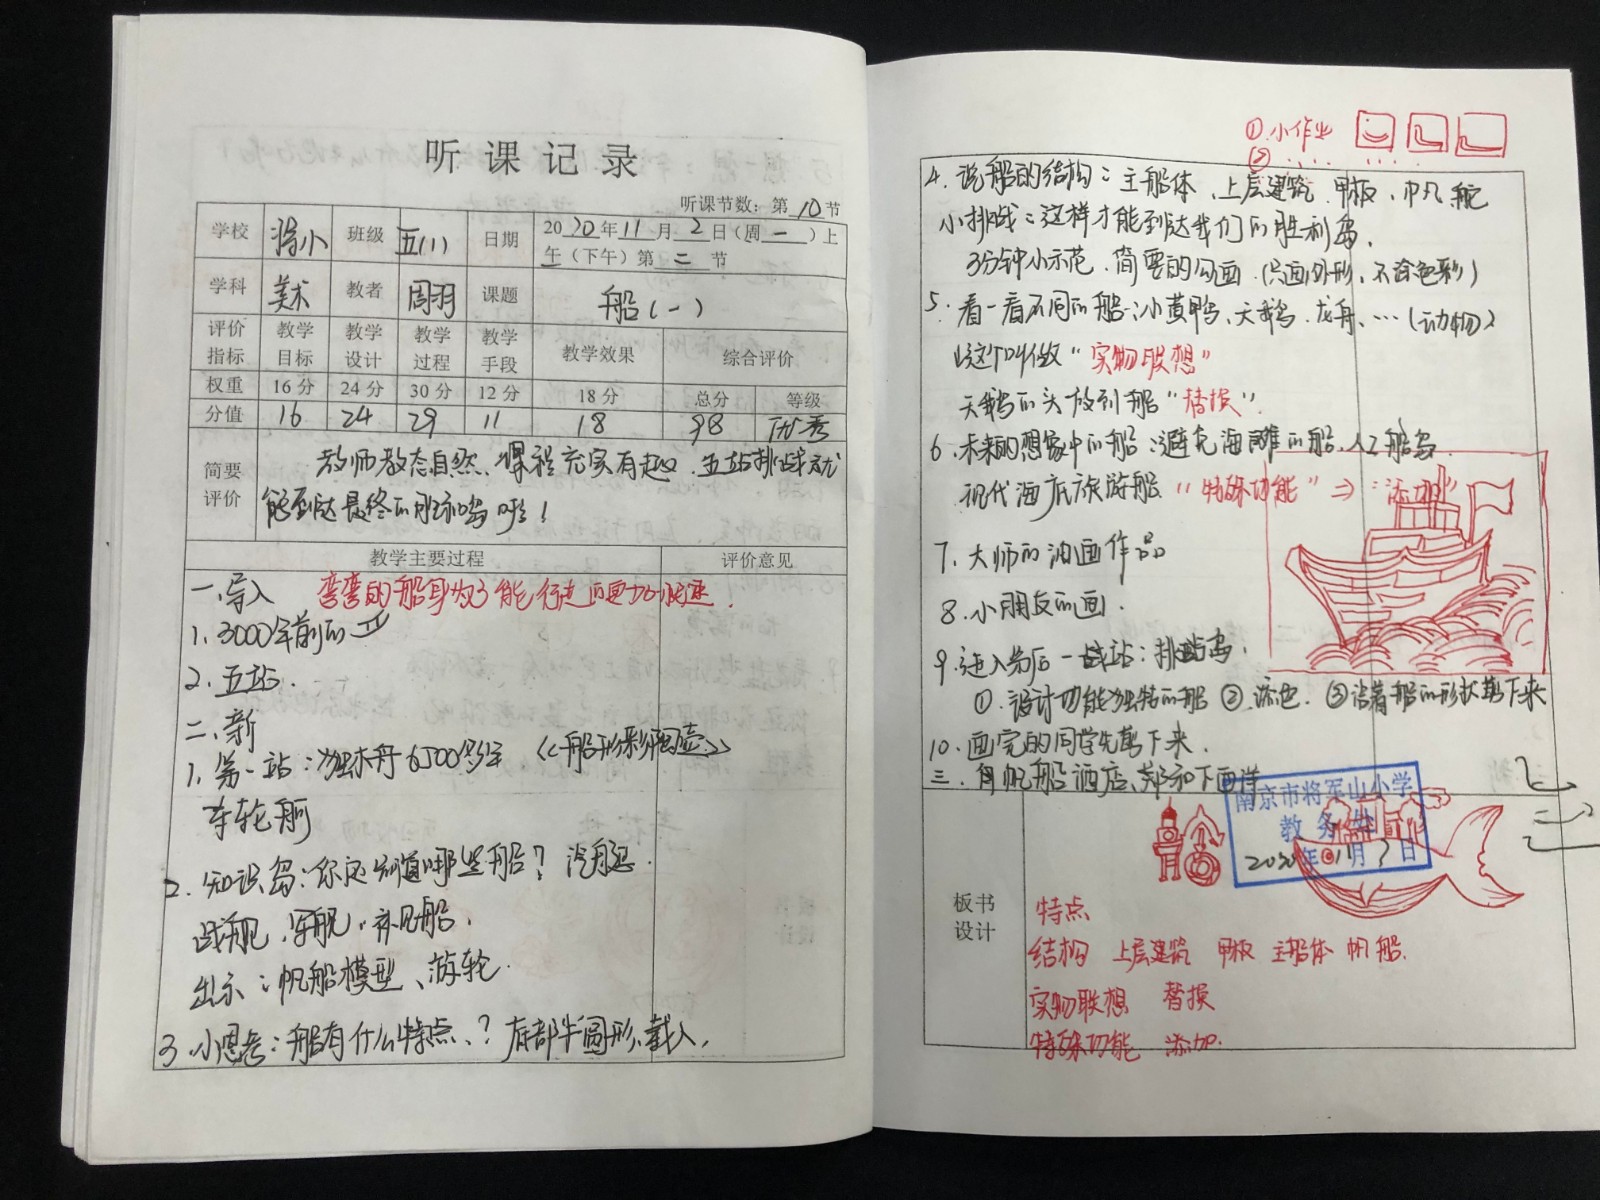 听课记录
听课节数：第10节
学校 将小 班级 五(1) 日期 2020年11月2日(周一)上
午(下午)第二节
学科 美术 教者 周羽 课题 船(一)
评价指标 教学目标 教学设计 教学过程 教学手段 教学效果 综合评价
权重 16分 24分 30分 12分 18分 总分 等级
分值 16 24 29 11 18 98 优秀
简要评价 教师教态自然、课程充实有趣、五站挑战就
能到达最终的胜利岛啦！
教学主要过程 评价意见
一、导入 弯弯的船身为了能行走的更加快速.
1. 3000年前的
2. 五站.
二、新
1. 第一站：独木舟 《船形彩陶壶》
车轮舸
2. 知识岛：你还知道哪些船？汽艇.
战舰、军舰、补见船.
出示：帆船模型、游轮.
3. 小思考：船有什么特点、？底部半圆形、载人.
①小作业
②
4. 说船的结构：主船体、上层建筑、甲板、巾凡船
小挑战：这样才能到达我们的胜利岛.
3分钟小示范、简要的勾画(只画外形，不涂色彩)
5. 看一看不同的船：小黄鸭、天鹅、龙舟、…(动物)
这个叫做“实物联想”
天鹅的头放到船“替换”.
6. 未来的想象中的船：避免海难的船、人工船岛
现代海底旅游船“特殊功能”⇒“添加”
7. 大师的油画作品
8. 小朋友的画.
9. 进入最后一战站：挑战岛.
①. 设计功能独特的船 ②. 添色. ③沿着船的形状剪下来
10. 画完的同学先剪下来.
三. 帆船酒店、郑和下西洋
南京市将军山小学
教务处
2020年11月 日
板书设计
特点
结构 上层建筑 甲板 主船体 帆船.
实物联想 替换
特殊功能 添加.